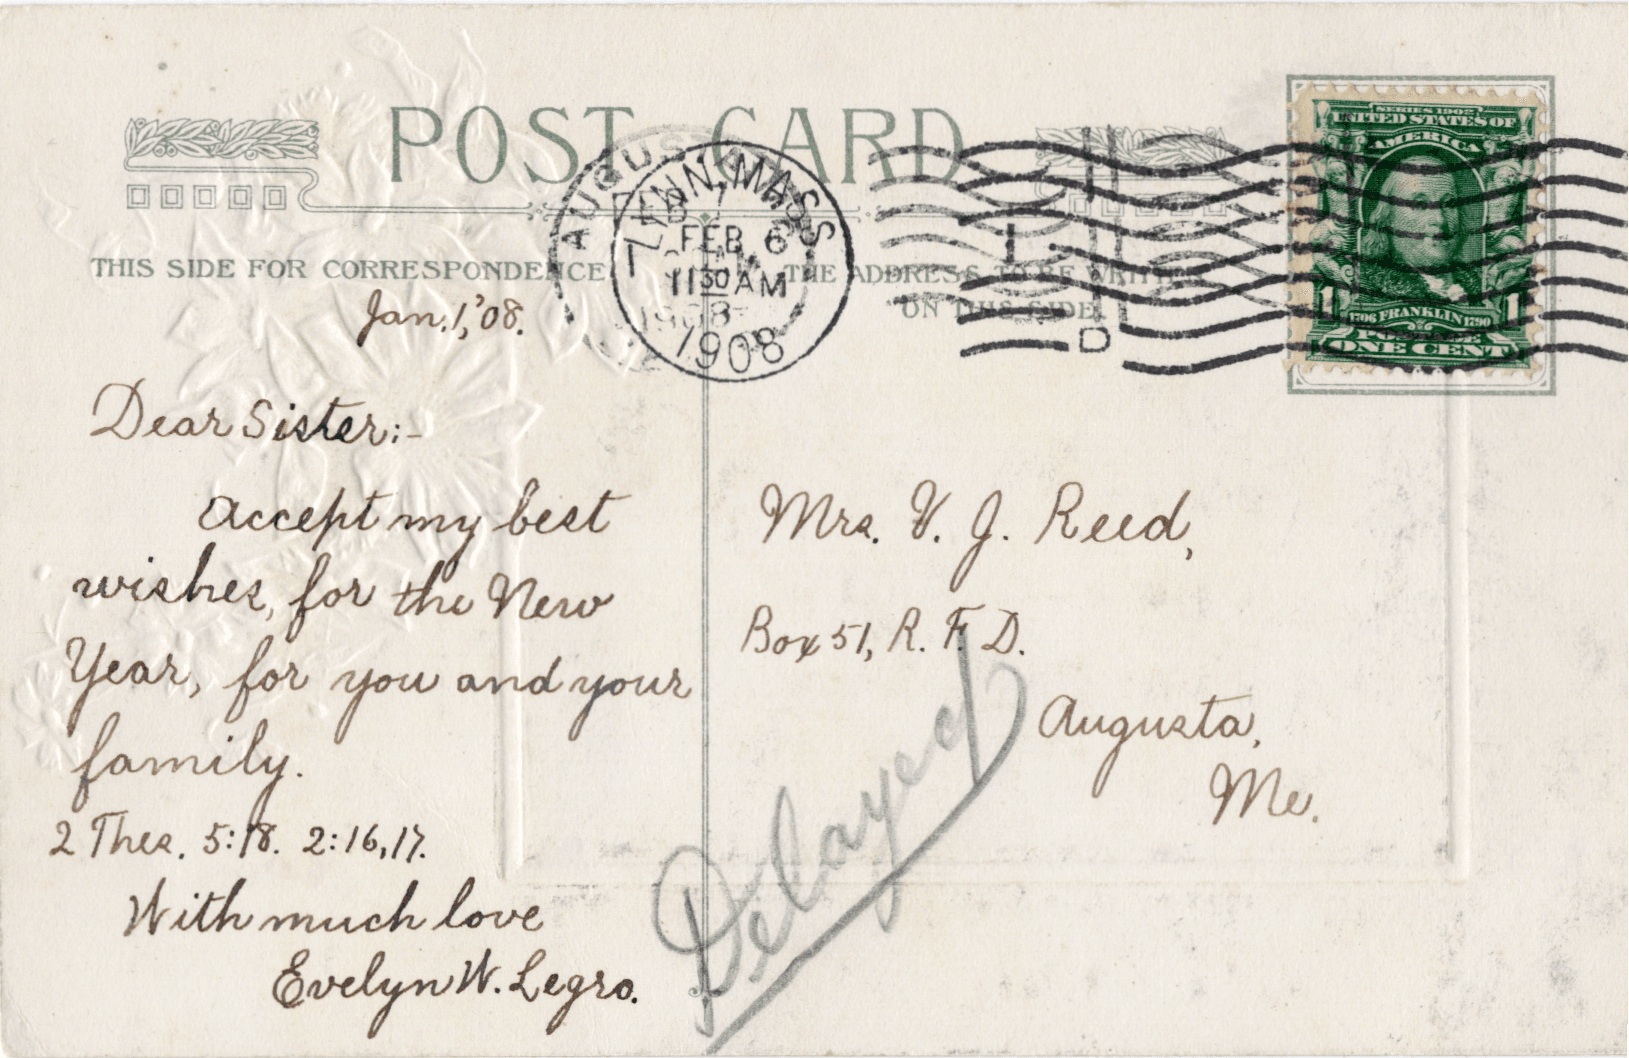 POST CARD
THIS SIDE FOR CORRESPONDENCE
THE ADDRESS TO BE WRITTEN
ON THIS SIDE
AUGUSTA
LYNN, MASS
FEB 6
11 30 AM
1908
D
SERIES 1902
UNITED STATES OF
AMERICA
1 1
1706 FRANKLIN 1790
POSTAGE
ONE CENT
Jan. 1, '08.
Dear Sister:-
Accept my best
wishes, for the New
Year, for you and your
family.
2 Thes. 5:18. 2:16,17.
With much love
Evelyn W. Legro.
Mrs. V. J. Reed,
Box 51, R. F. D.
Augusta,
Me.
Delayed